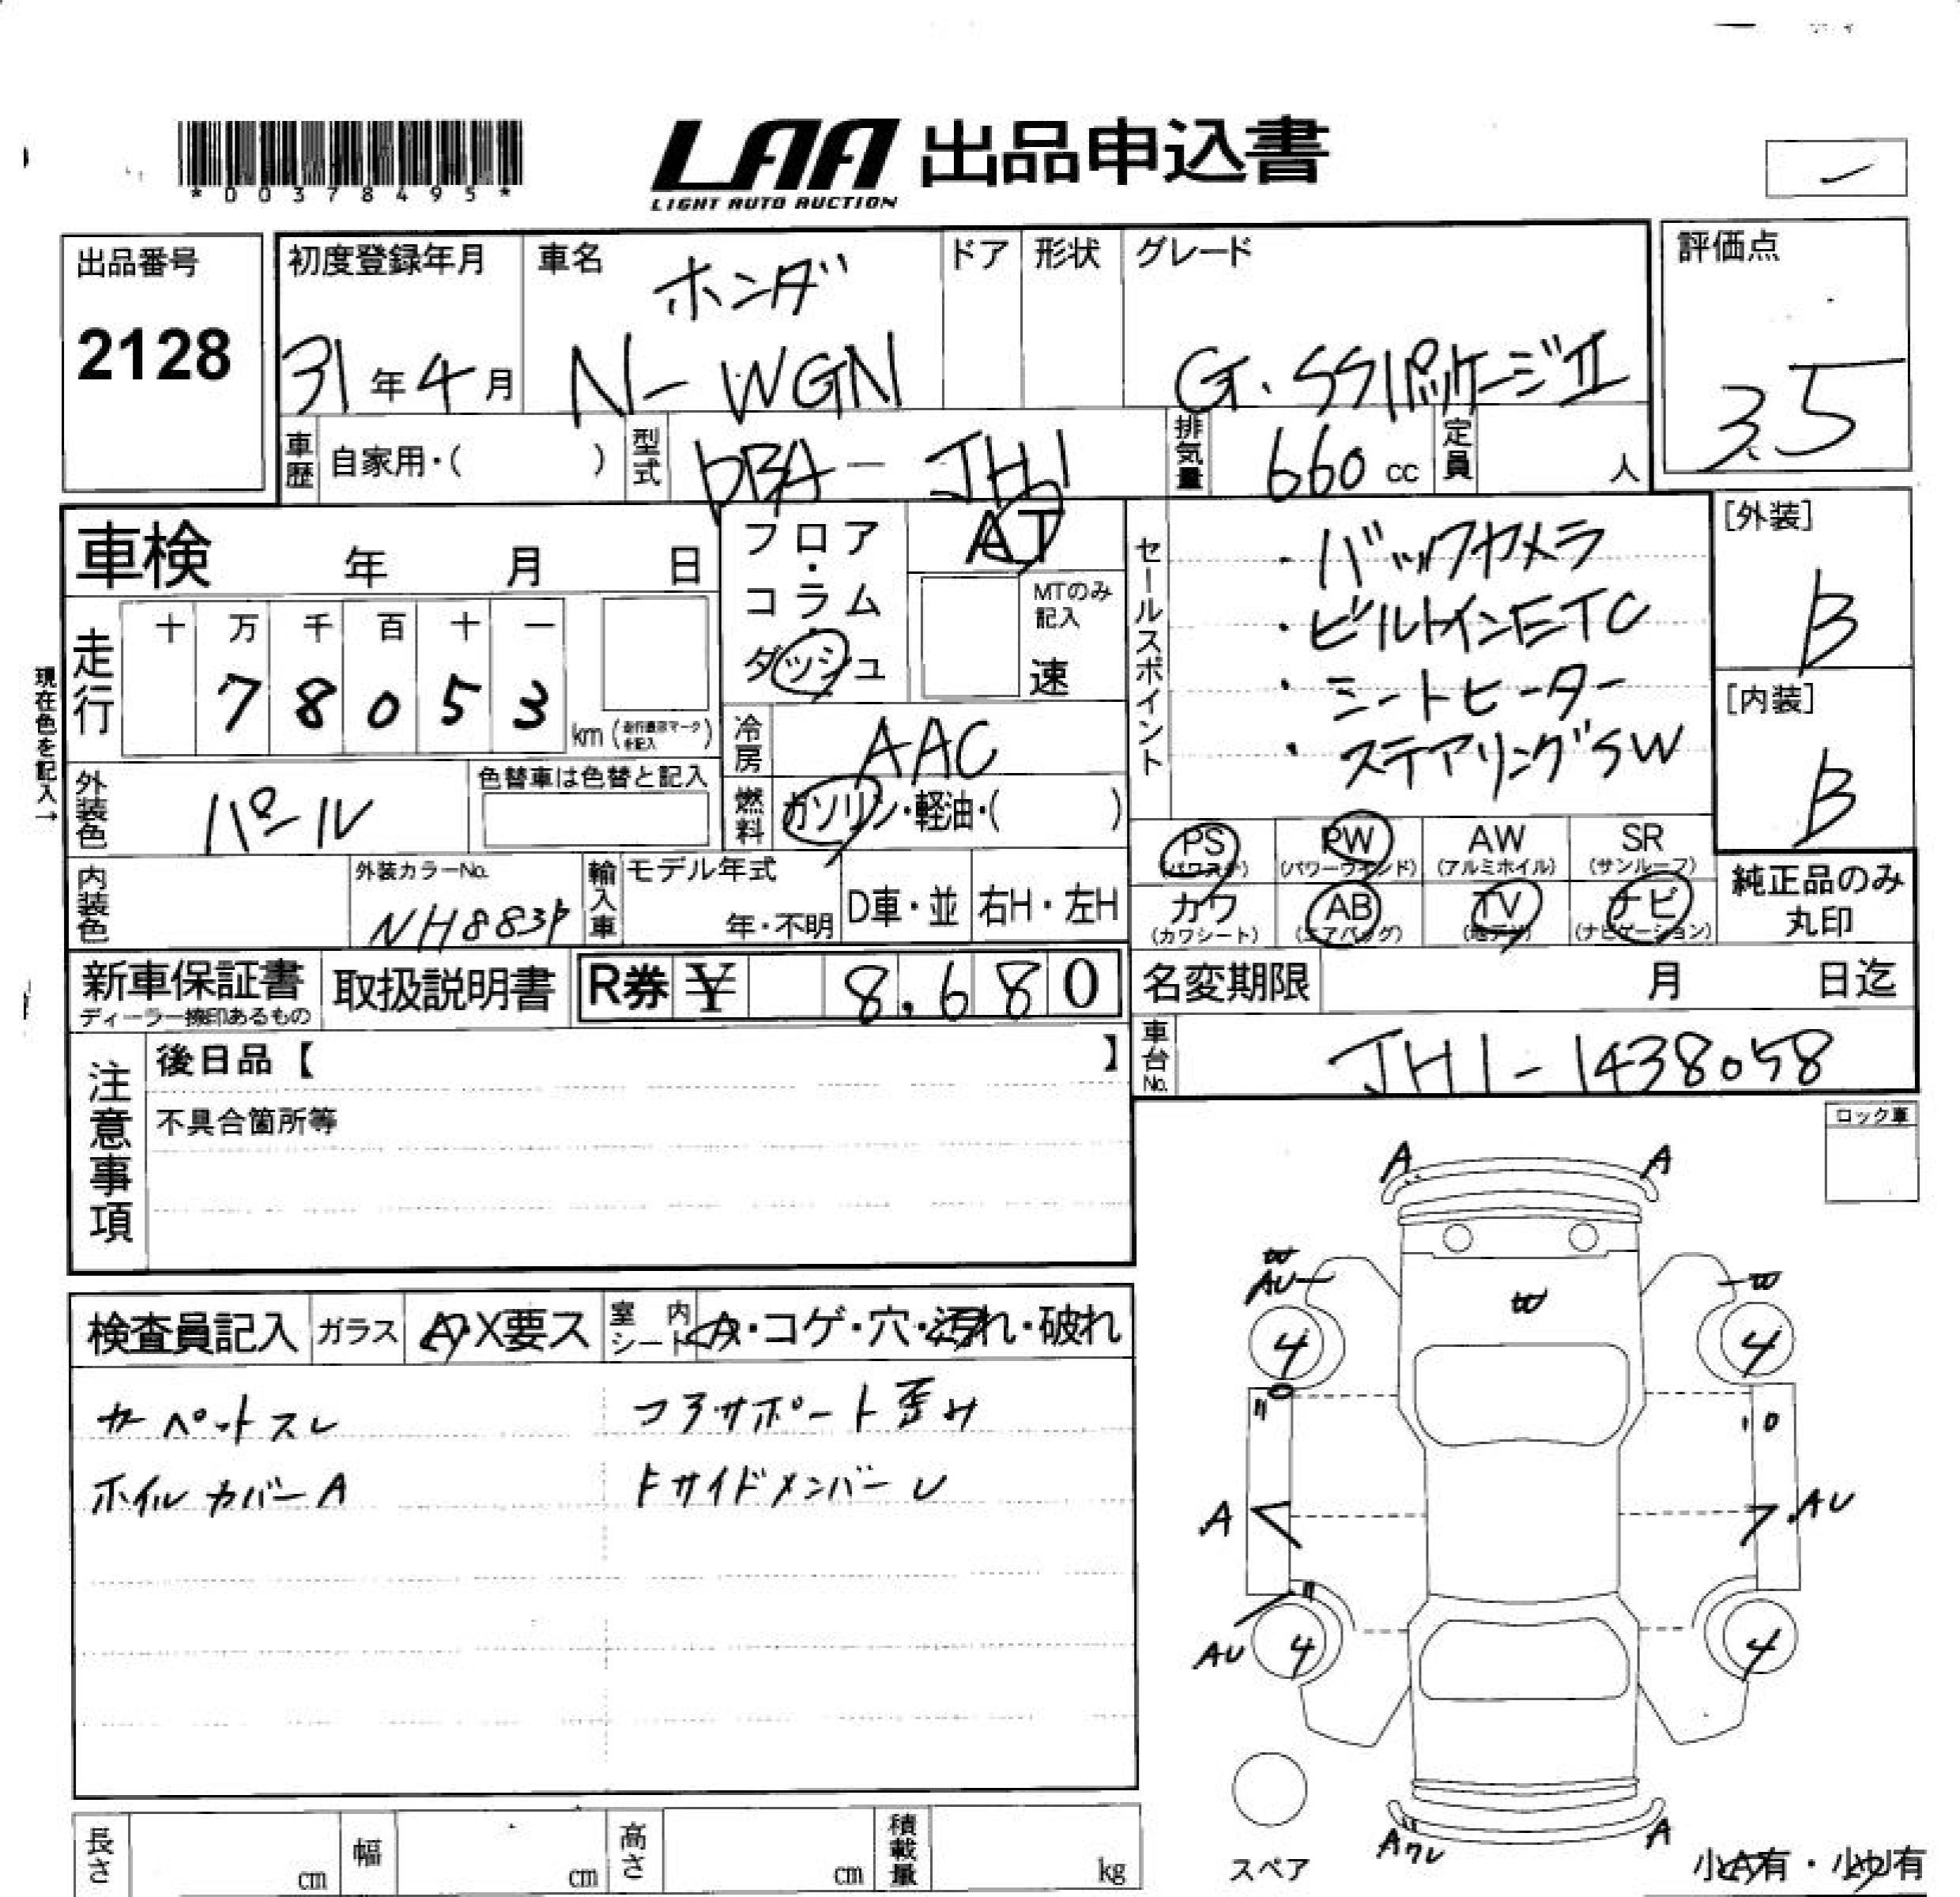 *00378495*
LAA 出品申込書
LIGHT AUTO AUCTION
出品番号
2128
初度登録年月
31年4月
車名
ホンダ
N-WGN
ドア
形状
グレード
G・SSパッケージⅡ
評価点
3.5
車歴
自家用・( )
型式
DBA-JH1
排気量
660cc
定員
人
車検 年 月 日
フロア・コラム・ダッシュ
AT
MTのみ記入
速
セールスポイント
・バックカメラ
・ビルトインETC
・シートヒーター
・ステアリングSW
[外装]
B
[内装]
B
現在色を記入→
走行
十 万 千 百 十 一
7 8 0 5 3
km(走行表示マークを記入)
冷房
AAC
外装色
パール
色替車は色替と記入
燃料
ガソリン・軽油・( )
PS
(パワステ)
PW
(パワーウインド)
AW
(アルミホイル)
SR
(サンルーフ)
内装色
外装カラーNo.
NH883P
輸入車
モデル年式
年・不明
D車・並
右H・左H
カワ
(カワシート)
AB
(エアバッグ)
TV
(地デジ)
ナビ
(ナビゲーション)
純正品のみ
丸印
新車保証書
ディーラー捺印あるもの
取扱説明書
R券 ¥ 8,680
名変期限
月 日迄
車台No.
JH1-1438058
注意事項
後日品【 】
不具合箇所等
ロック車
検査員記入
ガラス
A・X要ス
室内シート
A・コゲ・穴・汚れ・破れ
カーペットスレ
コアサポート歪み
ホイルカバーA
FサイドメンバーU
A A
W
AU
W
W
4 4
A
AU
AU
4 4
スペア
A
小A有・小U有
長さ cm
幅 cm
高さ cm
積載量 kg